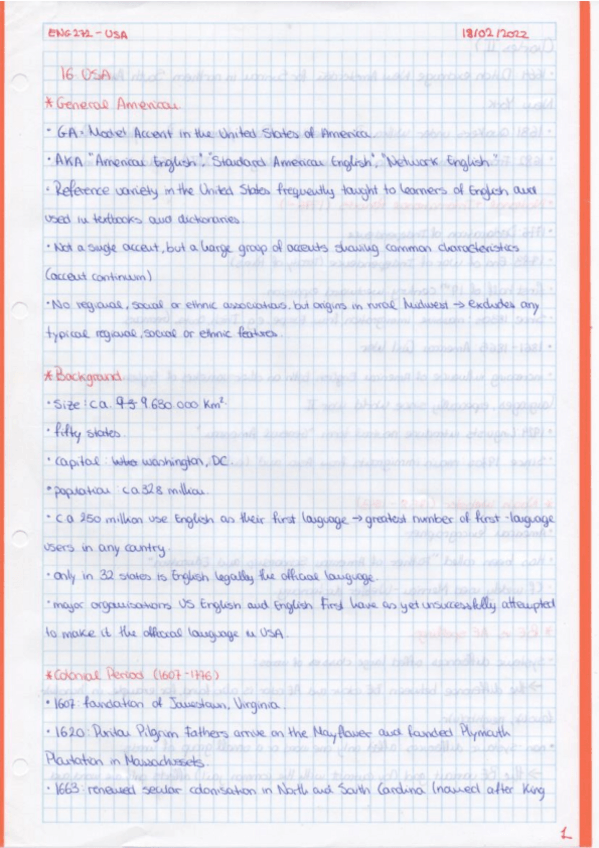 ENG272 - USA
18/02/2022
16 USA
* General American
• GA = Model Accent in the United States of America
• AKA "American English", "Standard American English", "Network English"
• Reference variety in the United States frequently taught to learners of English and
used in textbooks and dictionaries
• Not a single accent, but a large group of accents showing common characteristics
(accent continuum)
• No regional, social or ethnic associations, but origins in rural Midwest → excludes any
typical regional, social or ethnic features.
* Background
• Size: ca. 9 630 000 km².
• fifty states.
• capital: Washington, DC.
• population: ca 328 million.
• ca 250 million use English as their first language → greatest number of first-language
users in any country.
• only in 32 states is English legally the official language.
• major organisations US English and English First have as yet unsuccessfully attempted
to make it the official language in USA
* Colonial Period (1607-1776)
• 1607: foundation of Jamestown, Virginia.
• 1620: Puritan Pilgrim Fathers arrive on the Mayflower and founded Plymouth
Plantation in Massachussets
• 1663: renewed secular colonisation in North and South Carolina (named after King
1